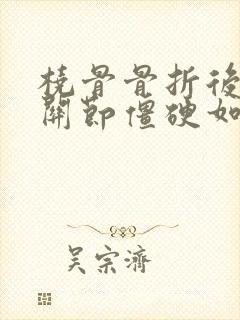 桡骨骨折後
關節僵硬如
吴宗濟